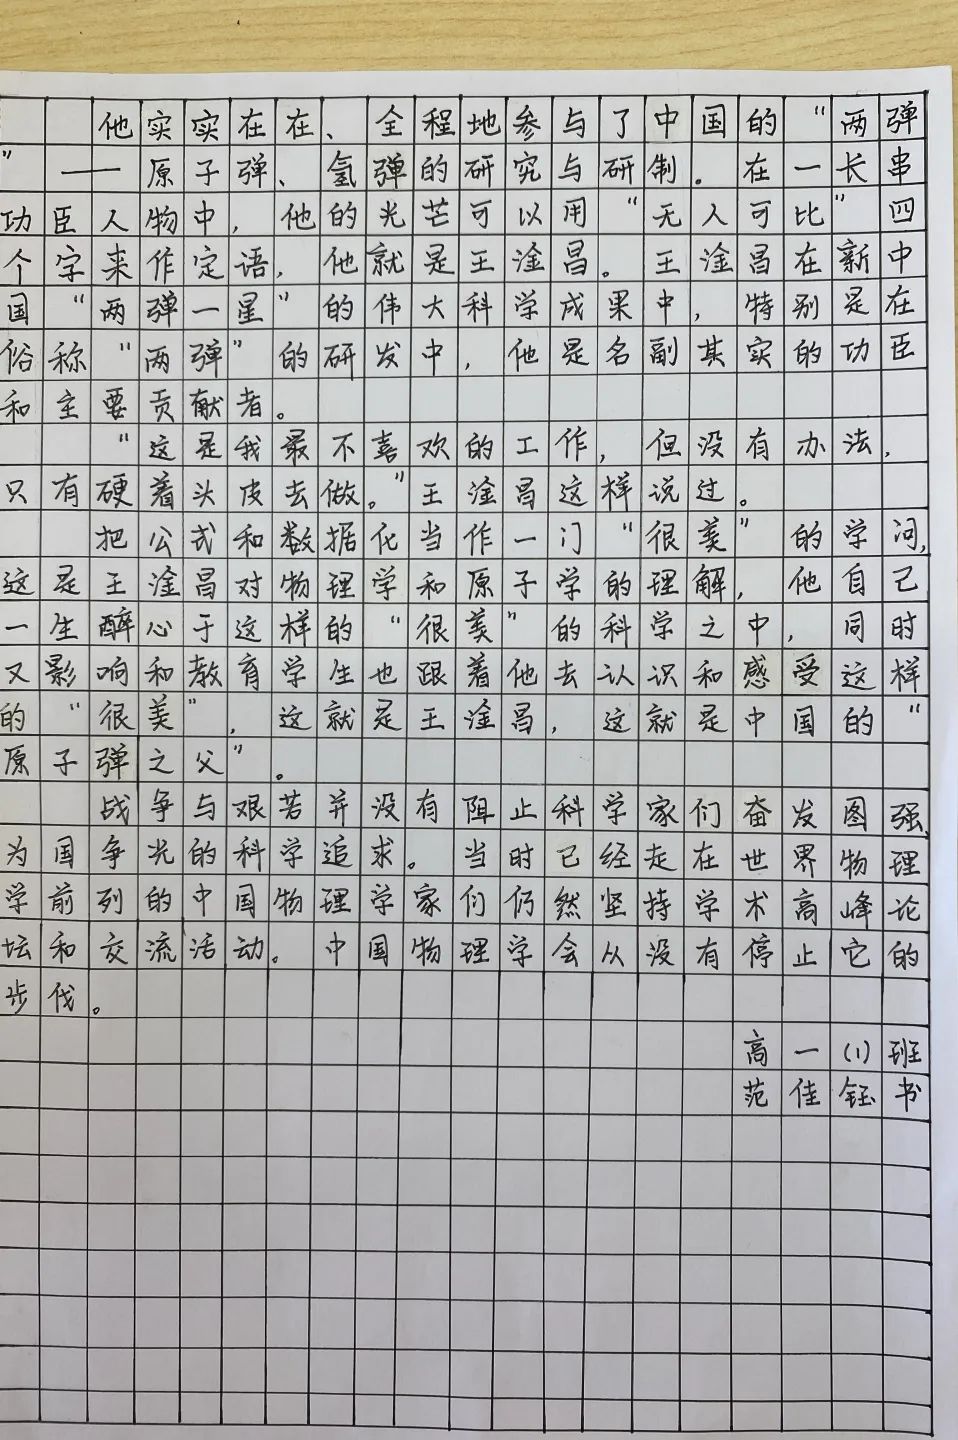 他实实在在、全程地参与了中国的“两弹
”——原子弹、氢弹的研究与研制。在一长串
功臣人物中，他的光芒可以用“无人可比”四
个字来作定语，他就是王淦昌。王淦昌在新中
国“两弹一星”的伟大科学成果中，特别是在
俗称“两弹”的研发中，他是名副其实的功臣
和主要贡献者。
“这是我最不喜欢的工作，但没有办法，
只有硬着头皮去做。”王淦昌这样说过。
把公式和数据化当作一门“很美”的学问，
这是王淦昌对物理学和原子学的理解，他自己
一生醉心于这样的“很美”的科学之中，同时
又影响和教育学生也跟着他去认识和感受这样
的“很美”，这就是王淦昌，这就是中国的“
原子弹之父”。
战争与艰苦并没有阻止科学家们奋发图强、
为国争光的科学追求。当时已经走在世界物理
学前列的中国物理学家们仍然坚持学术高峰论
坛和交流活动。中国物理学会从没有停止它的
步伐。
高一(1)班
范佳钰书